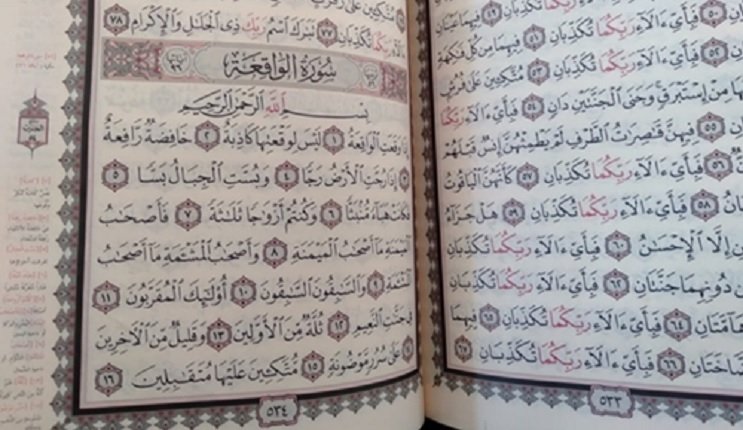 فَبِأَىِّ ءَالَآءِ رَبِّكُمَا تُكَذِّبَانِ ٤٩ فِيهِمَا عَيْنَانِ
٥٠ فَبِأَىِّ ءَالَآءِ رَبِّكُمَا تُكَذِّبَانِ ٥١ فِيهِمَا مِن كُلِّ فَٰكِهَةٍ
٥٢ فَبِأَىِّ ءَالَآءِ رَبِّكُمَا تُكَذِّبَانِ ٥٣ مُتَّكِـِٔينَ عَلَىٰ فُرُشٍۭ
مِنْ إِسْتَبْرَقٍ وَجَنَى ٱلْجَنَّتَيْنِ دَانٍ ٥٤ فَبِأَىِّ ءَالَآءِ رَبِّكُمَا
٥٥ فِيهِنَّ قَٰصِرَٰتُ ٱلطَّرْفِ لَمْ يَطْمِثْهُنَّ إِنسٌ قَبْلَهُمْ
٥٦ فَبِأَىِّ ءَالَآءِ رَبِّكُمَا تُكَذِّبَانِ ٥٧ كَأَنَّهُنَّ ٱلْيَاقُوتُ
٥٨ فَبِأَىِّ ءَالَآءِ رَبِّكُمَا تُكَذِّبَانِ ٥٩ هَلْ جَزَآءُ
إِلَّا ٱلْإِحْسَٰنُ ٦٠ فَبِأَىِّ ءَالَآءِ رَبِّكُمَا تُكَذِّبَانِ
دُونِهِمَا جَنَّتَانِ ٦٢ فَبِأَىِّ ءَالَآءِ رَبِّكُمَا تُكَذِّبَانِ
٦٤ فَبِأَىِّ ءَالَآءِ رَبِّكُمَا تُكَذِّبَانِ ٦٥ فِيهِمَا
٦٦ فَبِأَىِّ ءَالَآءِ رَبِّكُمَا تُكَذِّبَانِ ٦٧
٥٣٣
مُتَّكِـِٔينَ عَلَىٰ رَفْرَفٍ
ءَالَآءِ رَبِّكُمَا تُكَذِّبَانِ ٧٧ تَبَٰرَكَ ٱسْمُ رَبِّكَ ذِى ٱلْجَلَٰلِ وَٱلْإِكْرَامِ ٧٨
سُورَةُ الوَاقِعَةِ
بِسْمِ ٱللَّهِ ٱلرَّحْمَٰنِ ٱلرَّحِيمِ
إِذَا وَقَعَتِ ٱلْوَاقِعَةُ ١ لَيْسَ لِوَقْعَتِهَا كَاذِبَةٌ ٢ خَافِضَةٌ رَّافِعَةٌ
٣ إِذَا رُجَّتِ ٱلْأَرْضُ رَجًّا ٤ وَبُسَّتِ ٱلْجِبَالُ بَسًّا ٥
فَكَانَتْ هَبَآءً مُّنۢبَثًّا ٦ وَكُنتُمْ أَزْوَٰجًا ثَلَٰثَةً ٧ فَأَصْحَٰبُ
ٱلْمَيْمَنَةِ مَآ أَصْحَٰبُ ٱلْمَيْمَنَةِ ٨ وَأَصْحَٰبُ ٱلْمَشْـَٔمَةِ مَآ أَصْحَٰبُ
ٱلْمَشْـَٔمَةِ ٩ وَٱلسَّٰبِقُونَ ٱلسَّٰبِقُونَ ١٠ أُو۟لَٰٓئِكَ ٱلْمُقَرَّبُونَ ١١
فِى جَنَّٰتِ ٱلنَّعِيمِ ١٢ ثُلَّةٌ مِّنَ ٱلْأَوَّلِينَ ١٣ وَقَلِيلٌ مِّنَ ٱلْءَاخِرِينَ
١٤ عَلَىٰ سُرُرٍ مَّوْضُونَةٍ ١٥ مُّتَّكِـِٔينَ عَلَيْهَا مُتَقَٰبِلِينَ ١٦
٥٣٤